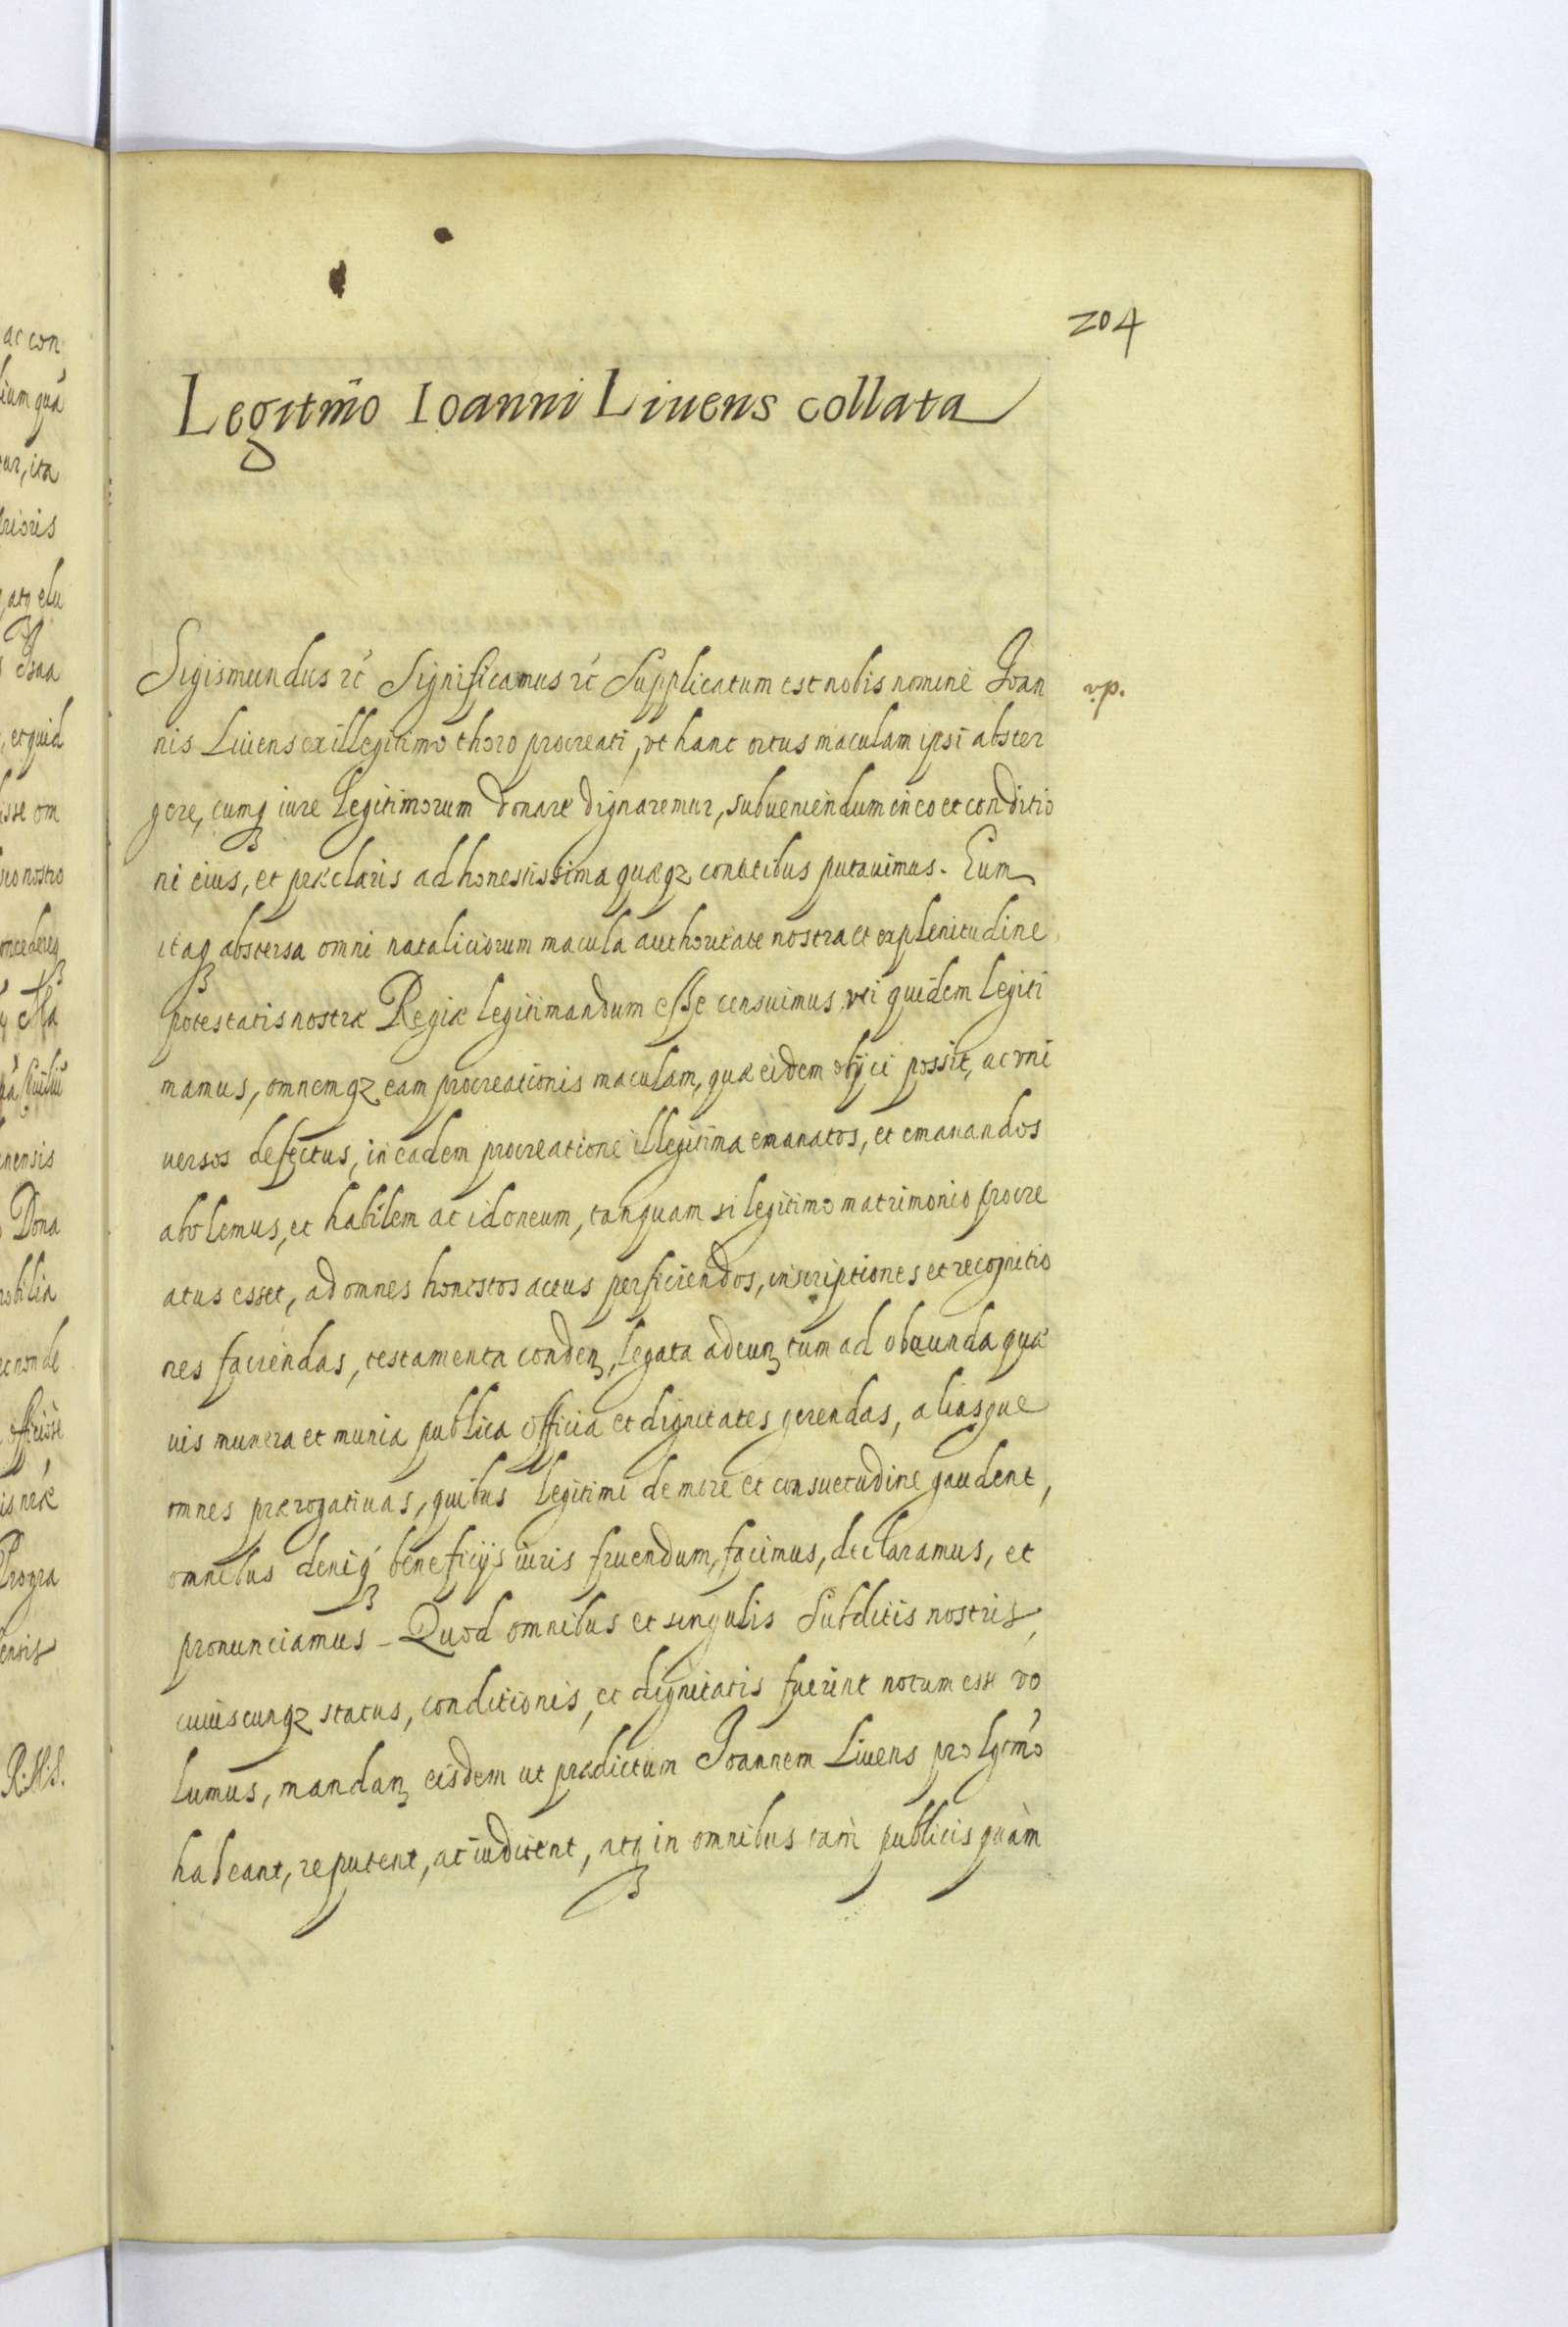 204
Legitm̃o Ioanni Liuens collata
Sigismundus ꝛc̃ Significamus ꝛc̃ Supplicatum est nobis nomine Joan
v.p.
nis Liuens ex illegitimo thoro procreati, vt hanc ortus maculam ipsi abster
gere, eumqꝫ iure Legitimorum donare dignaremur, subueniendum in eo et conditio
ni eius, et præclaris ad honestissima quæqꝫ conatibus putauimus. Eum
itaqꝫ abstersa omni nataliciorum macula authoritate nostra et ex plenitudine
potestatis nostræ Regiæ legitimandum esse censuimus, vti quidem Legiti
mamus, omnemqꝫ eam procreationis maculam, quæ eidem obijci possit, ac vni
uersos defectus, in eadem procreatione illegitima emanatos, et emanandos
abolemus, et habilem ac idoneum, tanquam si legitimo matrimonio procre
atus esset, ad omnes honestos actus perficiendos, inscriptiones et recognitio
nes faciendas, testamenta condenꝫ, legata adeunꝫ tum ad obeunda quæ
uis munera et munia publica officia et dignitates gerendas, aliasque
omnes prærogatiuas, quibus legitimi de more et consuetudine gaudent,
omnibus deniqꝫ beneficijs iuris fruendum, facimus, declaramus, et
pronunciamus - Quod omnibus et singulis Subditis nostris,
cuiuscunqꝫ status, conditionis, et dignitatis fuerint notum esse vo
lumus, mandanꝫ eisdem ut prædictum Joannem Liuens pro lgtm̃o
habeant, reputent, ac iudicent, atqꝫ in omnibus tam̀ publicis quàm